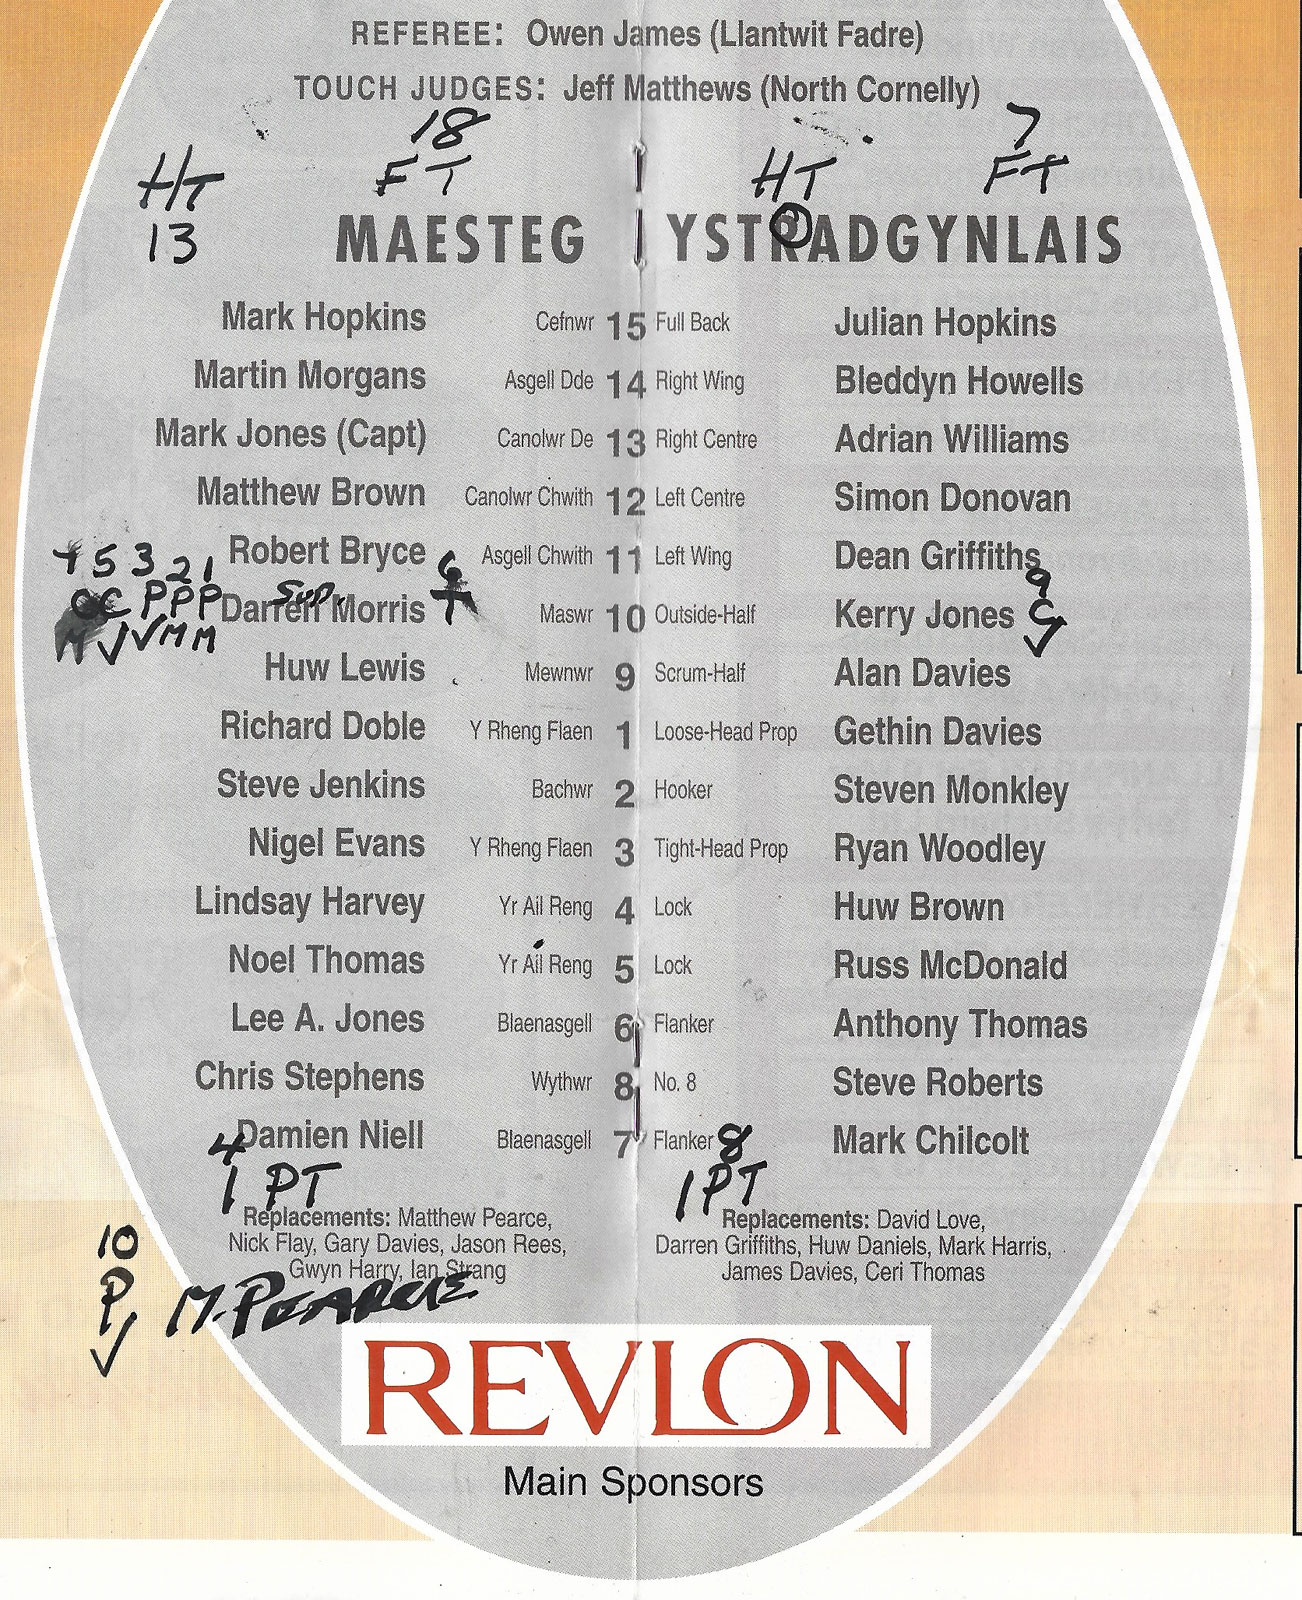 REFEREE: Owen James (Llantwit Fadre)
TOUCH JUDGES: Jeff Matthews (North Cornelly)
18 7
HT FT HT FT
13
MAESTEG YSTRADGYNLAIS
Mark Hopkins Cefnwr 15 Full Back Julian Hopkins
Martin Morgans Asgell Dde 14 Right Wing Bleddyn Howells
Mark Jones (Capt) Canolwr De 13 Right Centre Adrian Williams
Matthew Brown Canolwr Chwith 12 Left Centre Simon Donovan
Robert Bryce Asgell Chwith 11 Left Wing Dean Griffiths
5 3 2 1 6 9
C P P P Darren Morris T Maswr 10 Outside-Half Kerry Jones C
M ✓ ✓ M M ✓
Huw Lewis Mewnwr 9 Scrum-Half Alan Davies
Richard Doble Y Rheng Flaen 1 Loose-Head Prop Gethin Davies
Steve Jenkins Bachwr 2 Hooker Steven Monkley
Nigel Evans Y Rheng Flaen 3 Tight-Head Prop Ryan Woodley
Lindsay Harvey Yr Ail Reng 4 Lock Huw Brown
Noel Thomas Yr Ail Reng 5 Lock Russ McDonald
Lee A. Jones Blaenasgell 6 Flanker Anthony Thomas
Chris Stephens Wythwr 8 No. 8 Steve Roberts
Damien Niell Blaenasgell 7 Flanker Mark Chilcolt
4 8
1 PT 1 PT
Replacements: Matthew Pearce,
Nick Flay, Gary Davies, Jason Rees,
Gwyn Harry, Ian Strang
Replacements: David Love,
Darren Griffiths, Huw Daniels, Mark Harris,
James Davies, Ceri Thomas
10
P M. PEARCE
✓
REVLON
Main Sponsors